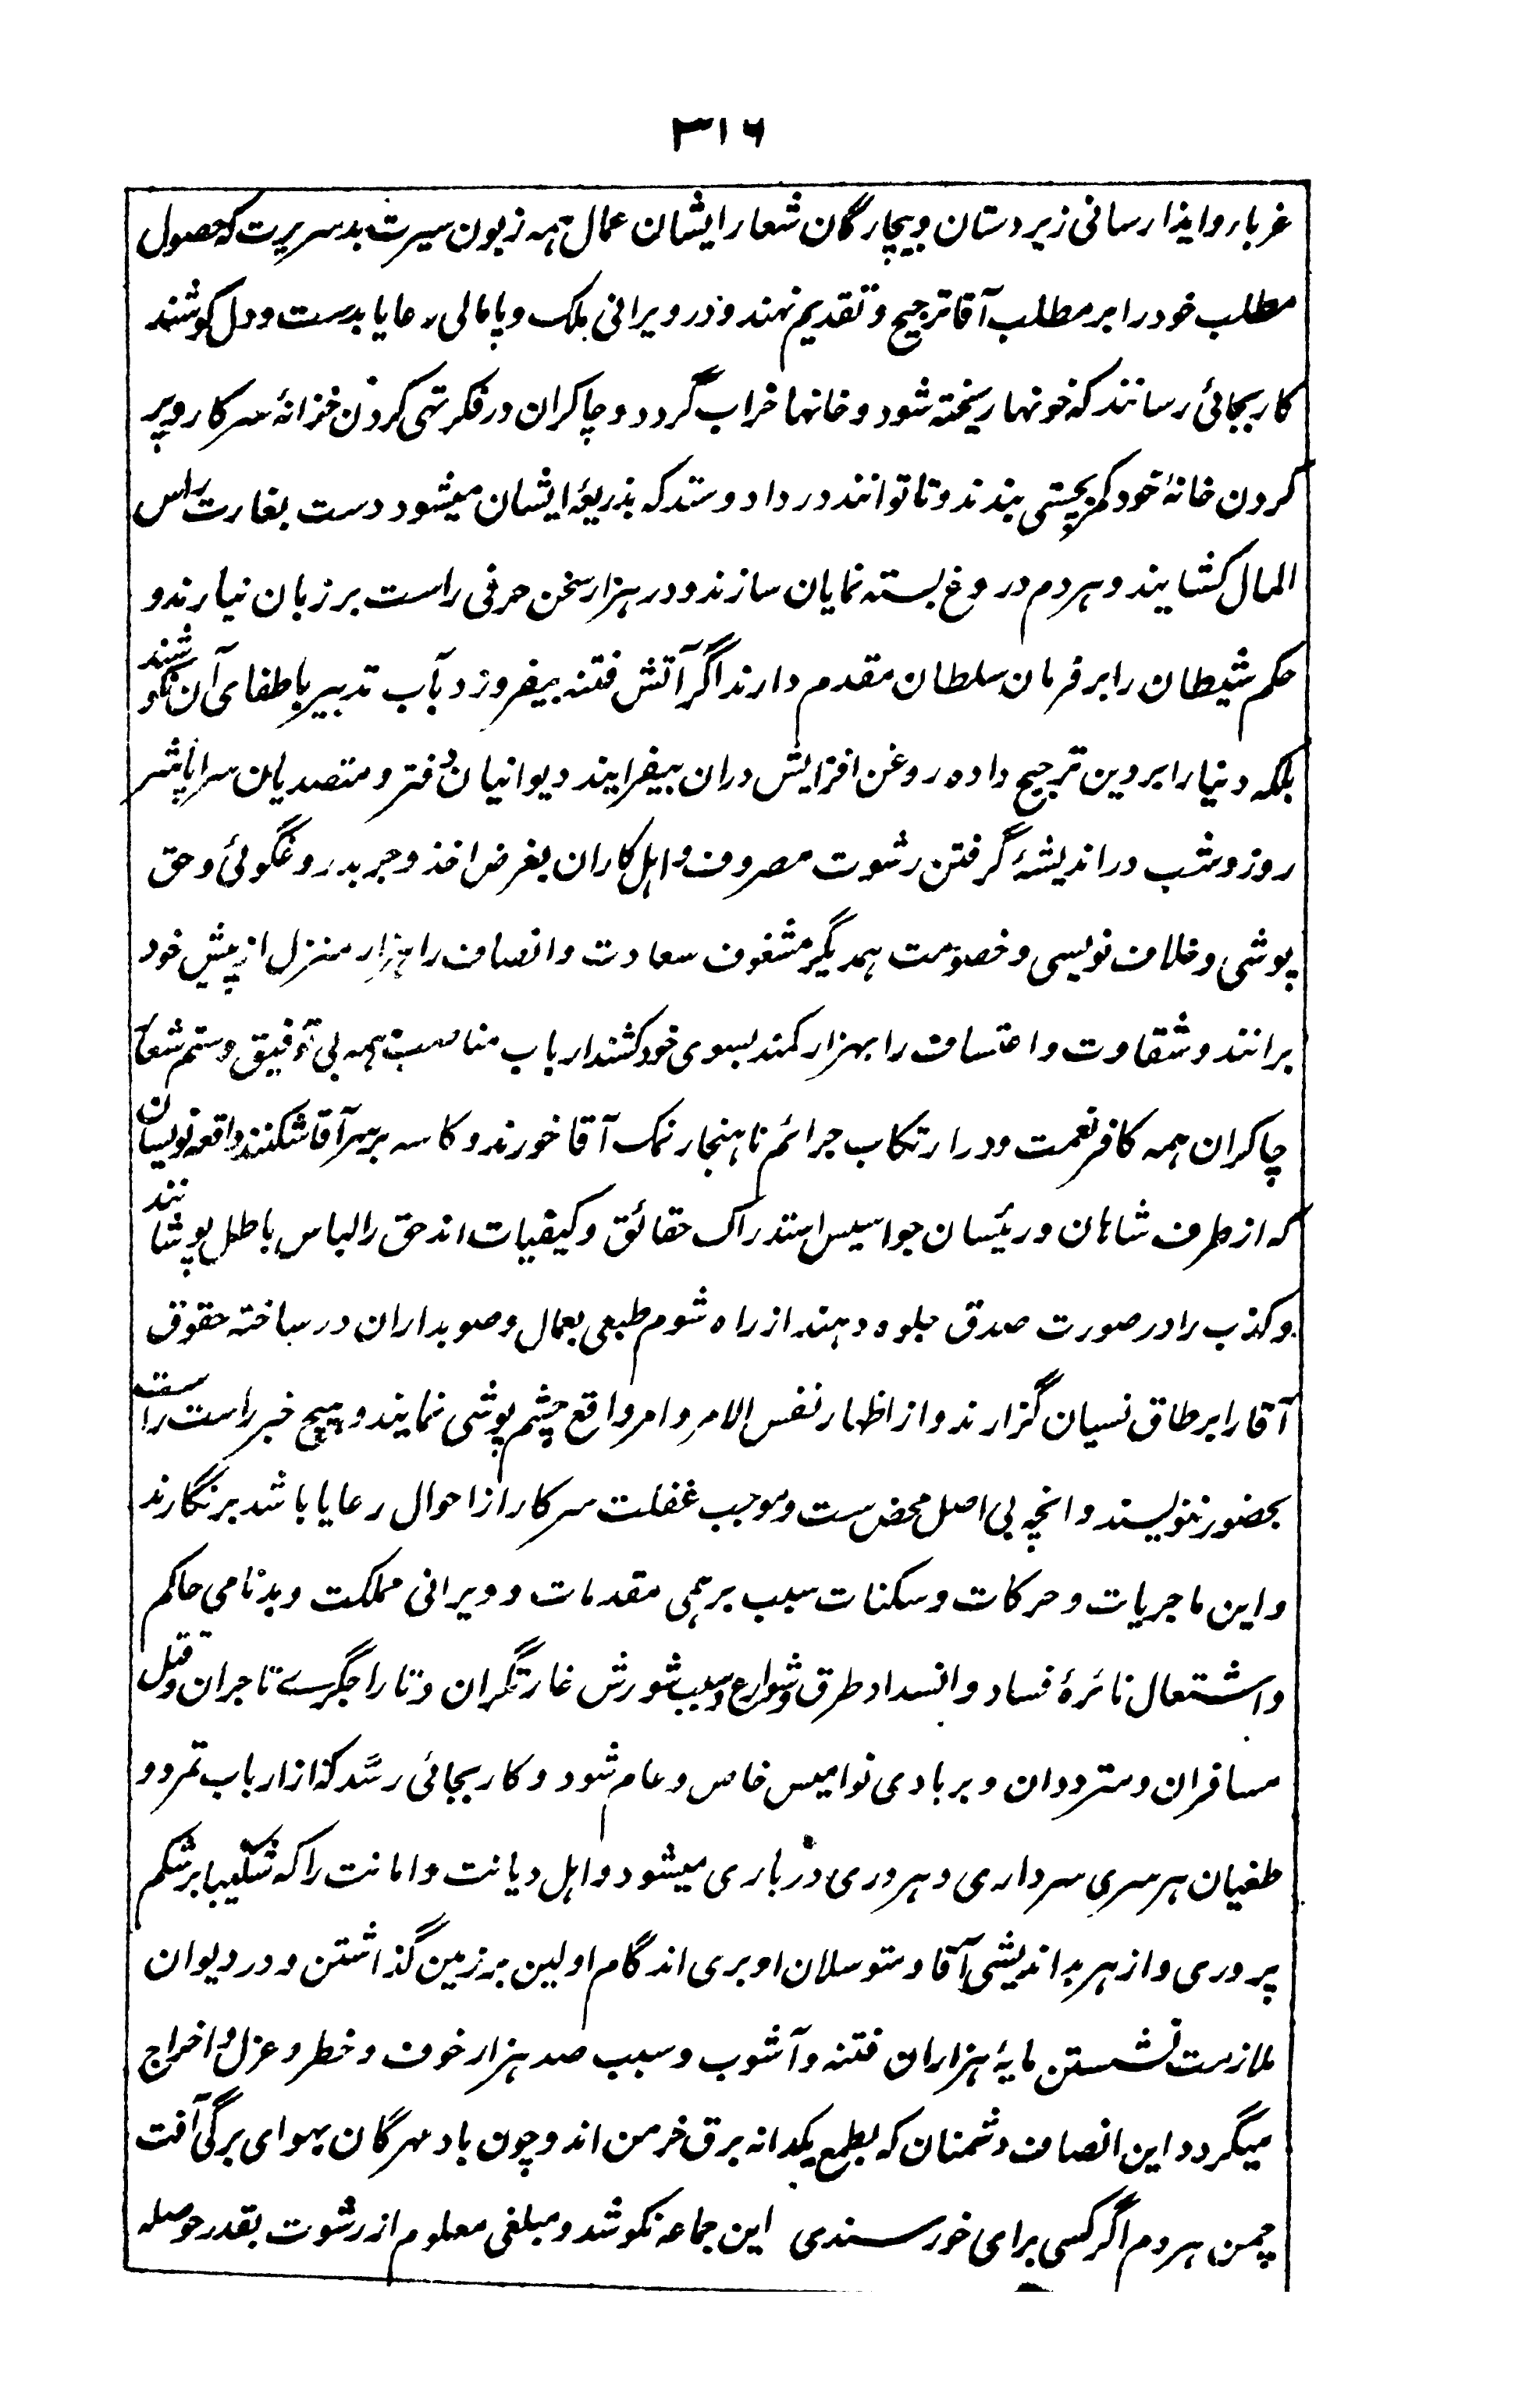 ۳۱۶
غربا و ایذا رسانی زیردستان و بیچارگان شعار ایشان عمال همه زبون سیرت بد سریرت که حصول
مطلب خود را بر مطلب آقا ترجیح و تقدیم نهند و در ویرانی ملک و پامالی رعایا بدست و دل کوشند
کار بجائی رسانند که خونها ریخته شود و خانها خراب گردد و چاکران در فکر تهی کردن خزانهٔ سرکار و پر
کردن خانهٔ خود کمر بچستی بندند و تا توانند در داد و ستد که بذریعهٔ ایشان میشود دست بغارت راس
المال کشایند و هر دم دروغ بسته نمایان سازند و در هزار سخن حرفی راست بر زبان نیارند و
حکم شیطان را بر فرمان سلطان مقدم دارند اگر آتش فتنه بیفروزد بآب تدبیر باطفای آن نکوشند
بلکه دنیا را بر دین ترجیح داده روغن افزایش دران بیفزایند دیوانیان دفتر و متصدیان سراپا شر
روز و شب در اندیشهٔ گرفتن رشوت مصروف و اهل کاران بغرض اخذ و جر بدروغگوئی و حق
پوشی و خلاف نویسی و خصومت همدیگر مشغوف سعادت و انصاف را هزار منزل از پیش خود
برانند و شقاوت و اعتساف را بهزار کمند بسوی خود کشند ارباب مناصب همه بی توفیق و ستم شعار
چاکران همه کافر نعمت و در ارتکاب جرائم ناهنجار نمک آقا خورند و کاسه بر سر آقا شکنند واقعه نویسان
که از طرف شاهان و رئیسان جواسیس استدراک حقائق و کیفیات اند حق را لباس باطل پوشانند
و کذب را در صورت صدق جلوه دهند از راه شوم طبعی بعمال و صوبداران در ساخته حقوق
آقا را بر طاق نسیان گزارند و از اظهار نفس الامر و امر واقع چشم پوشی نمایند و هیچ خبر راست راست
بحضور ننویسند و انچه بی اصل محض ست و موجب غفلت سرکار از احوال رعایا باشد برنگارند
و این ماجریات و حرکات و سکنات سبب برهمی مقدمات و ویرانی مملکت و بدنامی حاکم
و اشتعال نائرهٔ فساد و انسداد طرق و شوارع و سبب شورش غارتگران و تاراجگرے تاجران و قتل
مسافران و متردّدان و بربادی نوامیس خاص و عام شود و کار بجائی رسد که از ارباب تمرد و
طغیان هر سری سرداری و هر دری درباری میشود و اهل دیانت و امانت را که شکیبا بر شکم
پروری و از هر بداندیشی آقا و متوسلان او بری اند گام اولین بر زمین گذاشتن و در دیوان
ملازمت نشستن مایهٔ هزاران فتنه و آشوب و سبب صد هزار خوف و خطر و عزل و اخراج
میگردد این انصاف دشمنان که بطمع یکدانه برق خرمن اند و چون باد مهرگان بهوای برگی آفت
چمن هر دم اگر کسی برای خورسندی این جماعه نکوشد و مبلغی معلوم از رشوت بقدر حوصله